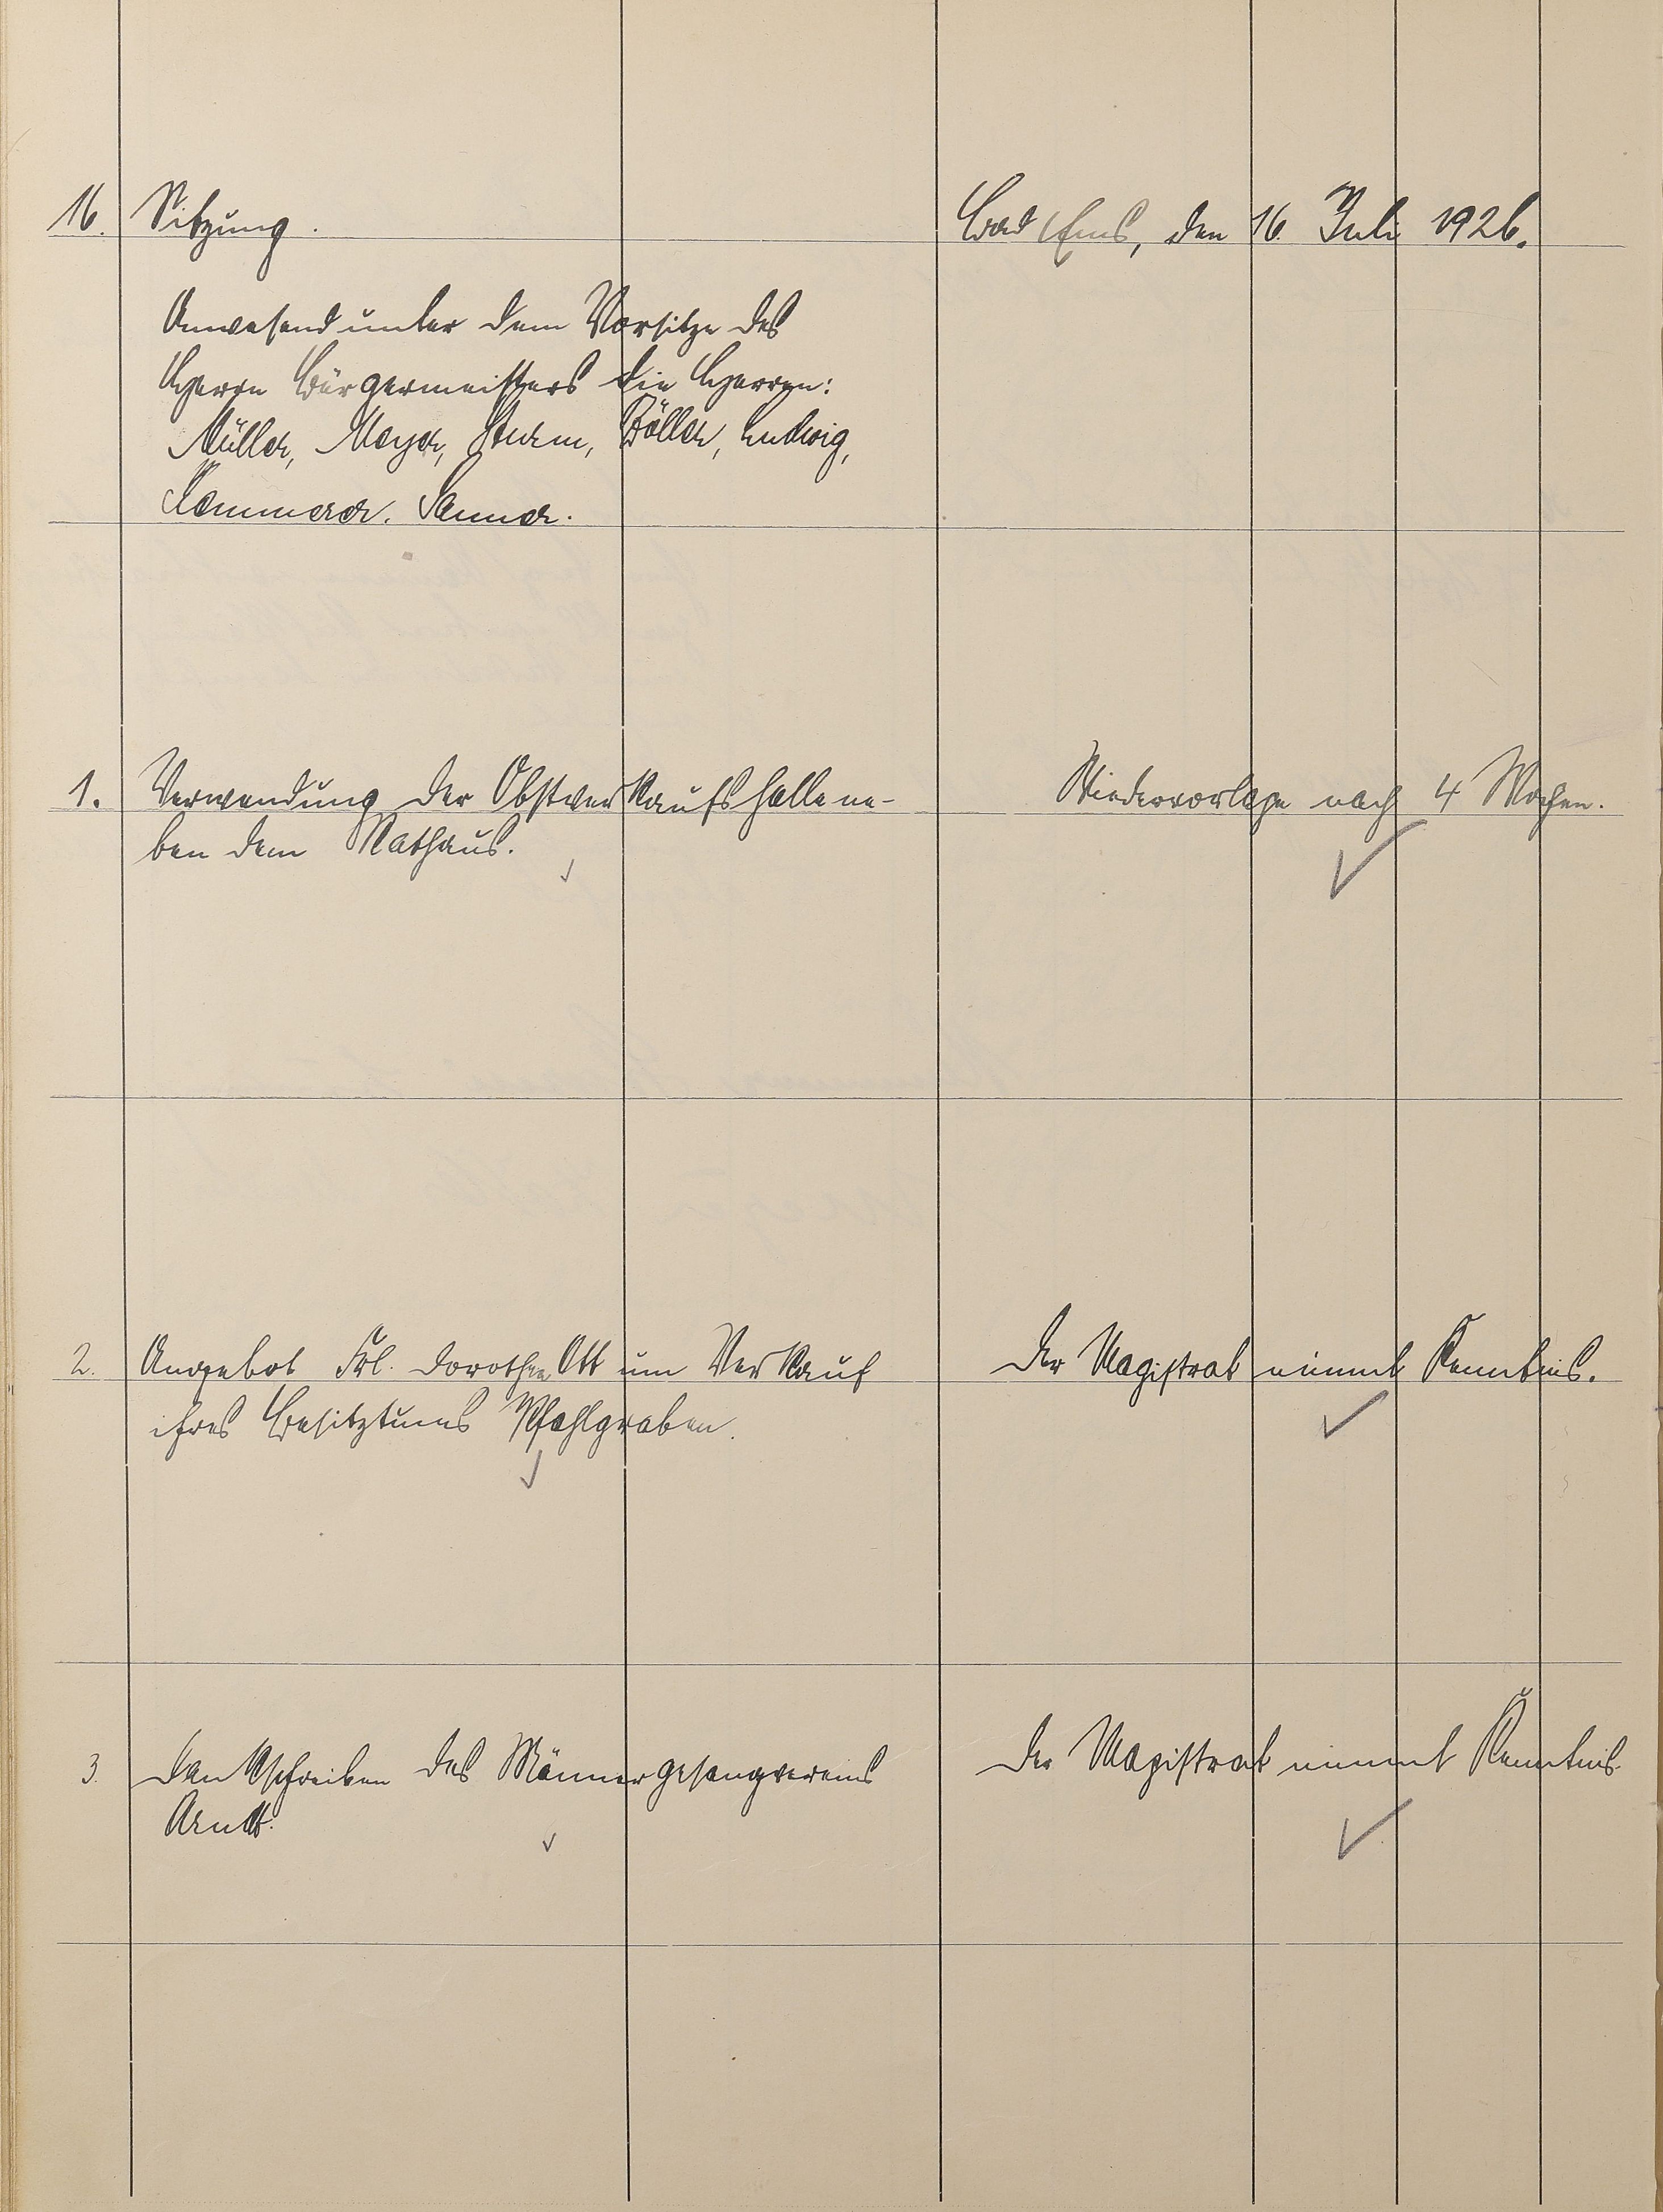 16. Sitzung. Bad Ems, den 16. Juli 1926.
Anwesend unter dem Vorsitze des
Herrn Bürgermeisters die Herren:
Müller, Meyer, Sturm, Böller, Ludwig,
Kammerer. Sanner.
1. Verwendung der Obstverkaufshalle ne- Wiedervorlage nach 4 Wochen.
ben dem Rathaus.
2. Angebot Frl. Dorothea Ott um Verkauf Der Magistrat nimmt Kenntnis.
ihres Besitztums Pfahlgraben.
3. Dankschreiben des Männergesangvereins Der Magistrat nimmt Kenntnis.
Arndt.